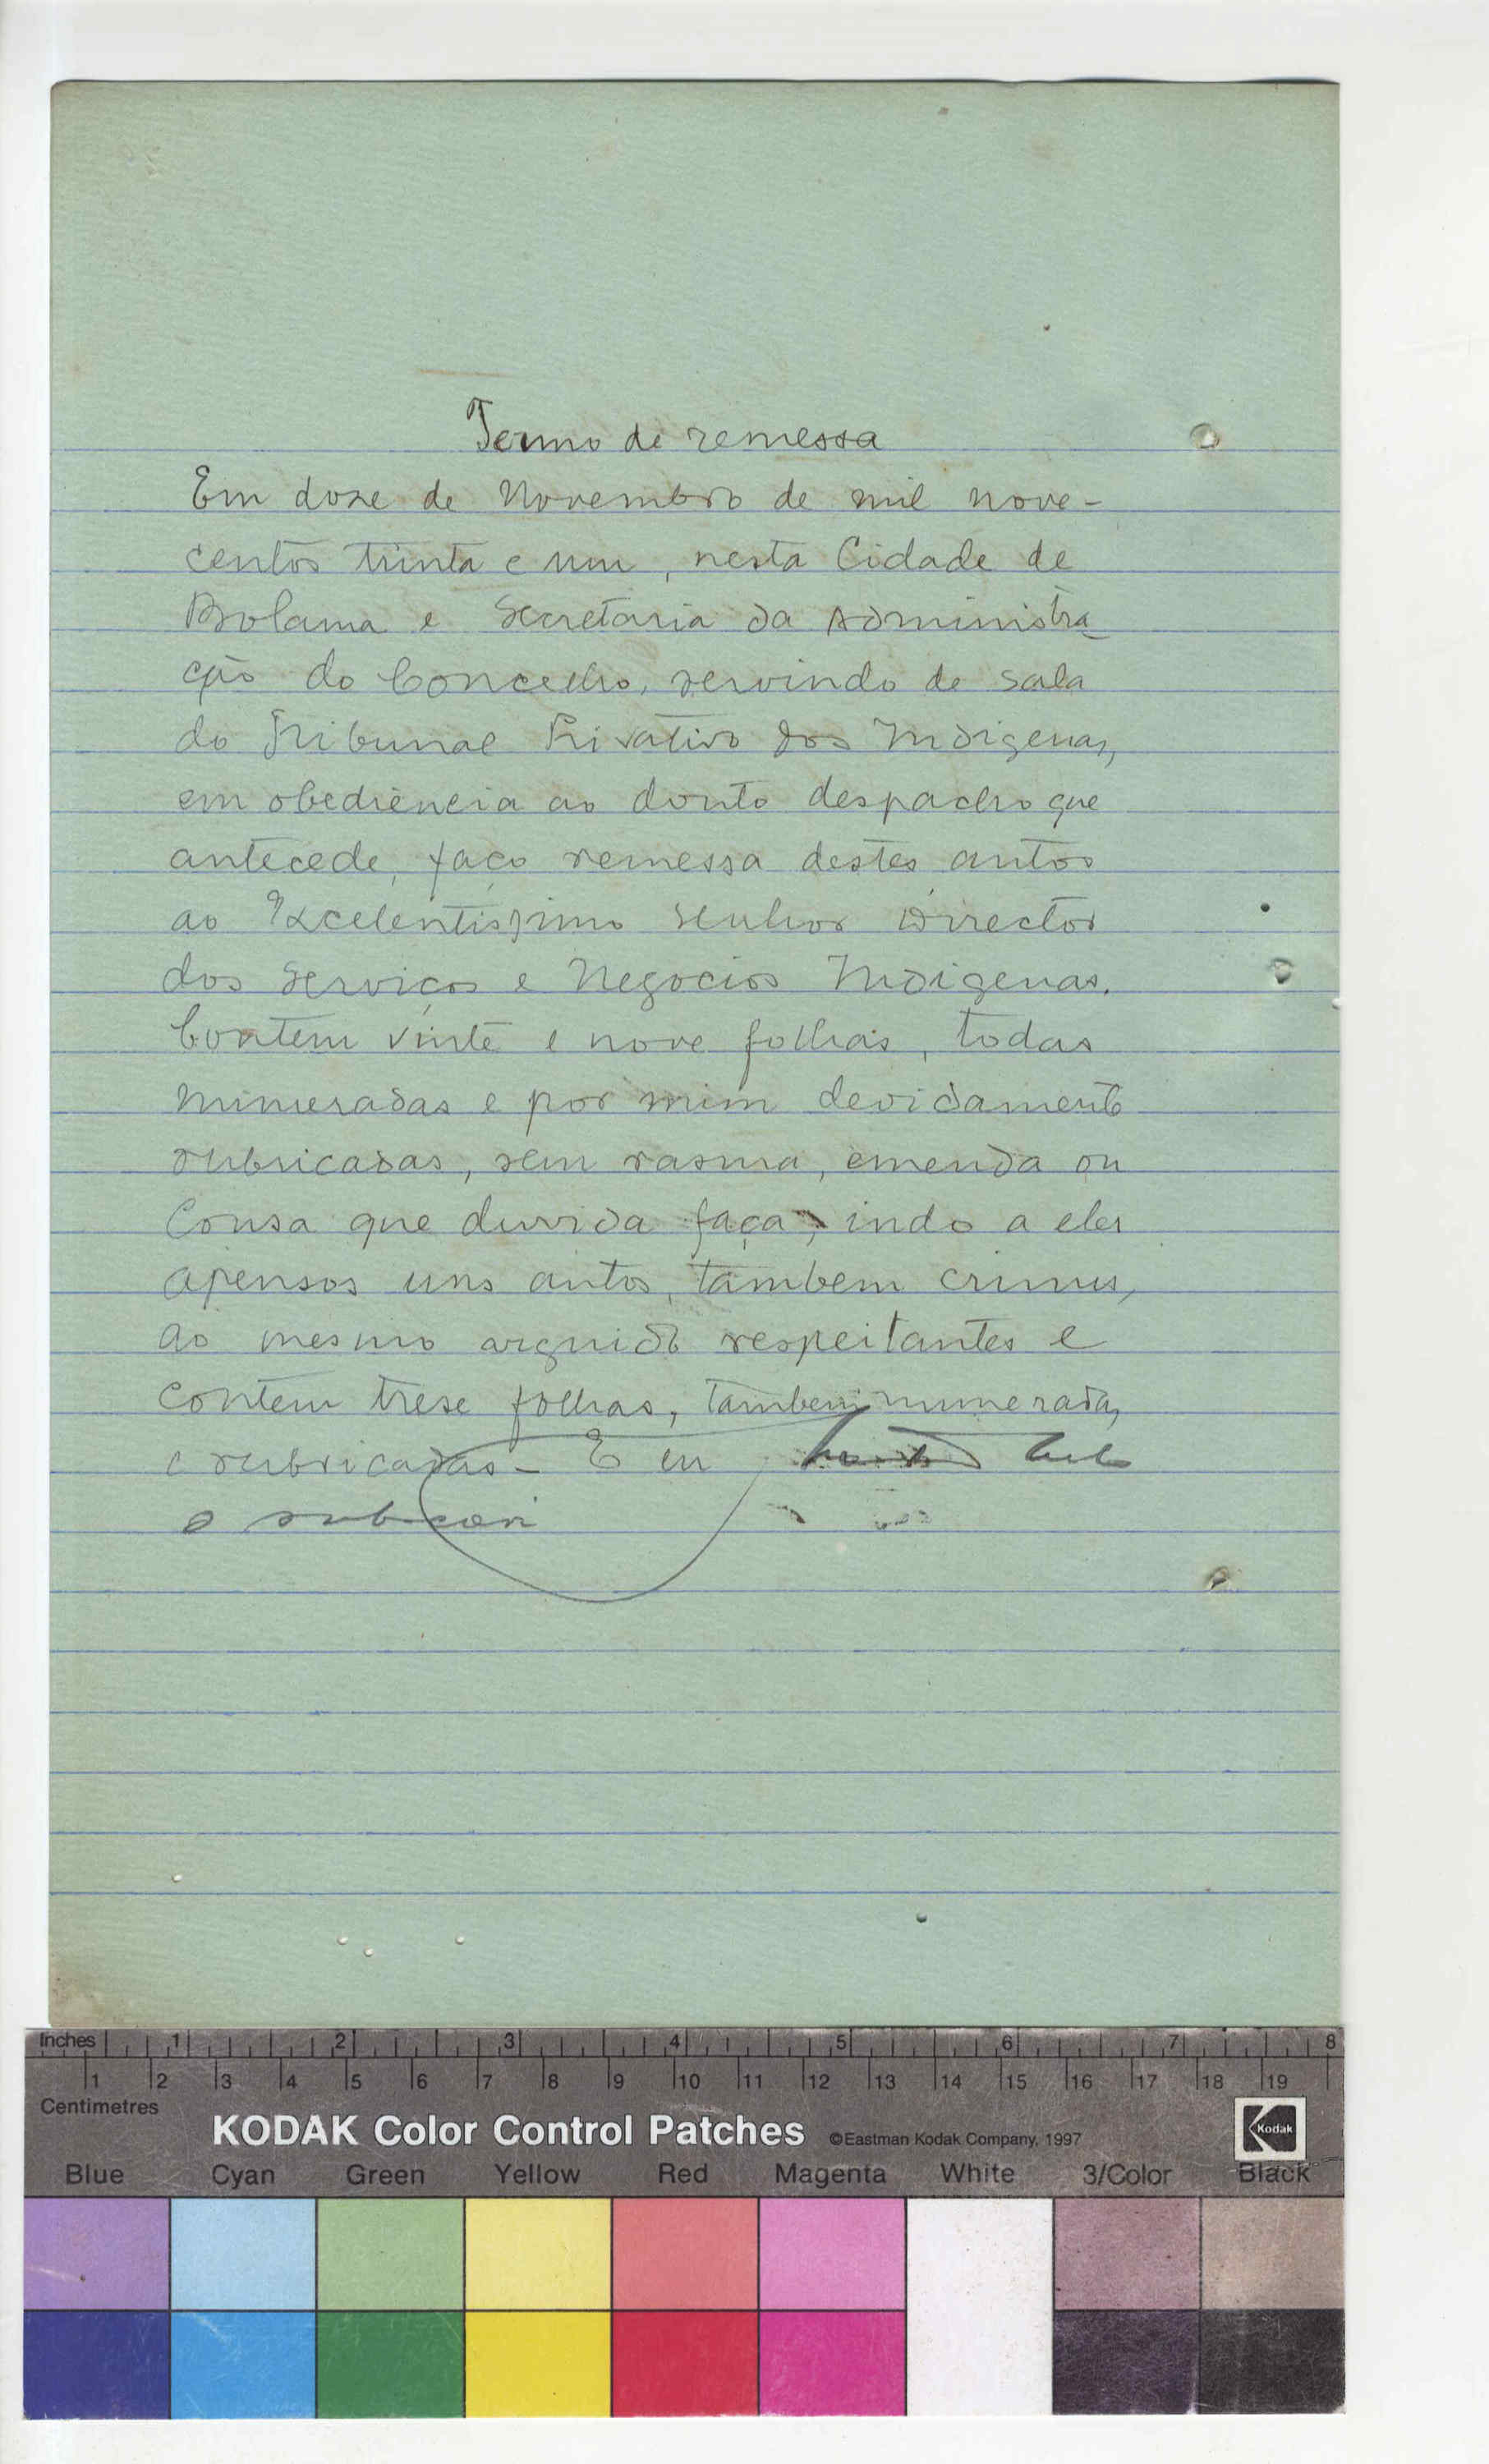 Termo de remessa
Em doze de Novembro de mil nove-
centos trinta e um, nesta Cidade de
Bolama e Secretaria da Administra-
ção do Concelho, servindo de sala
do Tribunal Privativo dos Indigenas,
em obediência ao douto despacho que
antecede, faço remessa destes autos
ao Excelentissimo Senhor Director
dos Serviços e Negocios Indigenas.
Contem vinte e nove folhas, todas
numeradas e por mim devidamente
rubricadas, sem rasura, emenda ou
Cousa que duvida faça, indo a eles
apensos uns autos, tambem crimes,
ao mesmo arguido respeitantes e
contem treze folhas, tambem numeradas
e rubricadas - E eu
o subscrevi
Inches 1 2 3 4 5 6 7 8
1 2 3 4 5 6 7 8 9 10 11 12 13 14 15 16 17 18 19
Centimetres
KODAK Color Control Patches ©Eastman Kodak Company, 1997 Kodak
Blue Cyan Green Yellow Red Magenta White 3/Color Black